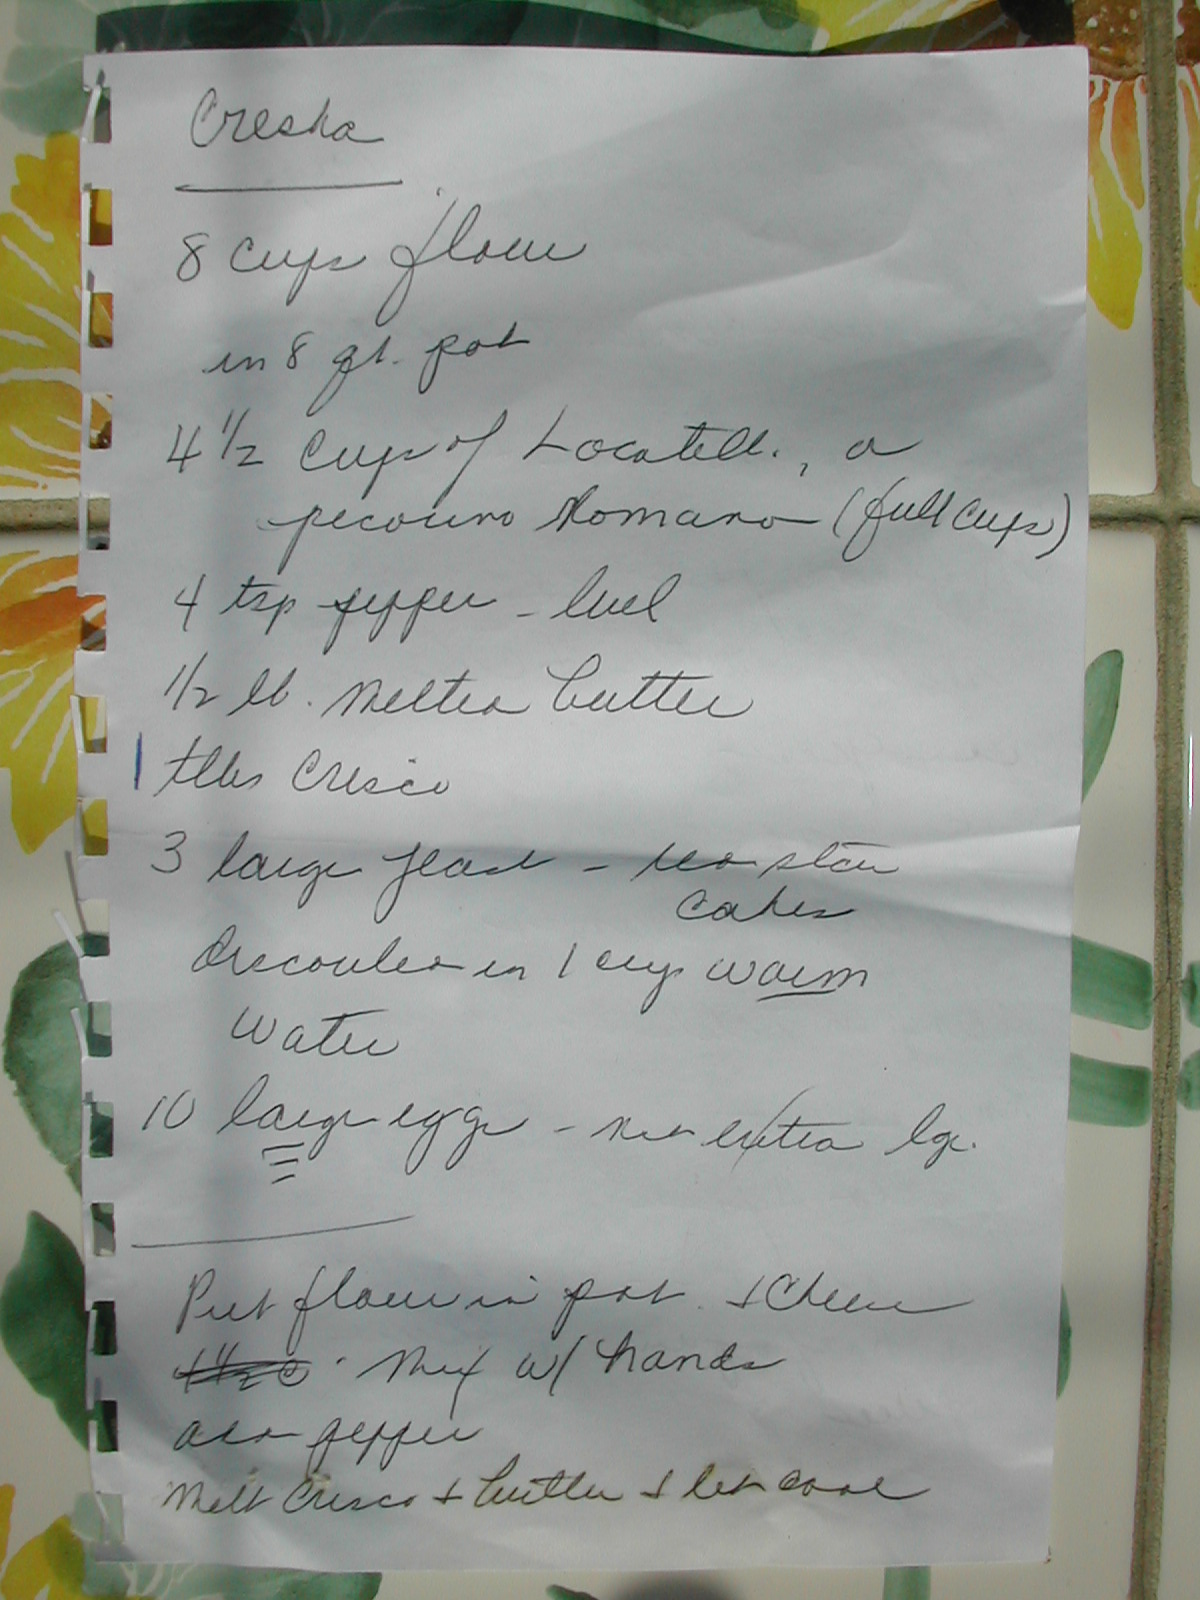 Creska
8 cups flour
in 8 qt. pot
4 1/2 cups of Locatelli, a
pecorino Romano (full cups)
4 tsp pepper - level
1/2 lb. melted butter
1 tbls Crisco
3 large yeast - red star
cakes
in 1 cup warm
water
10 large eggs - not extra lge.
Put flour in pot + cheese
mix w/ hands
add pepper
Melt Crisco + butter + let cool